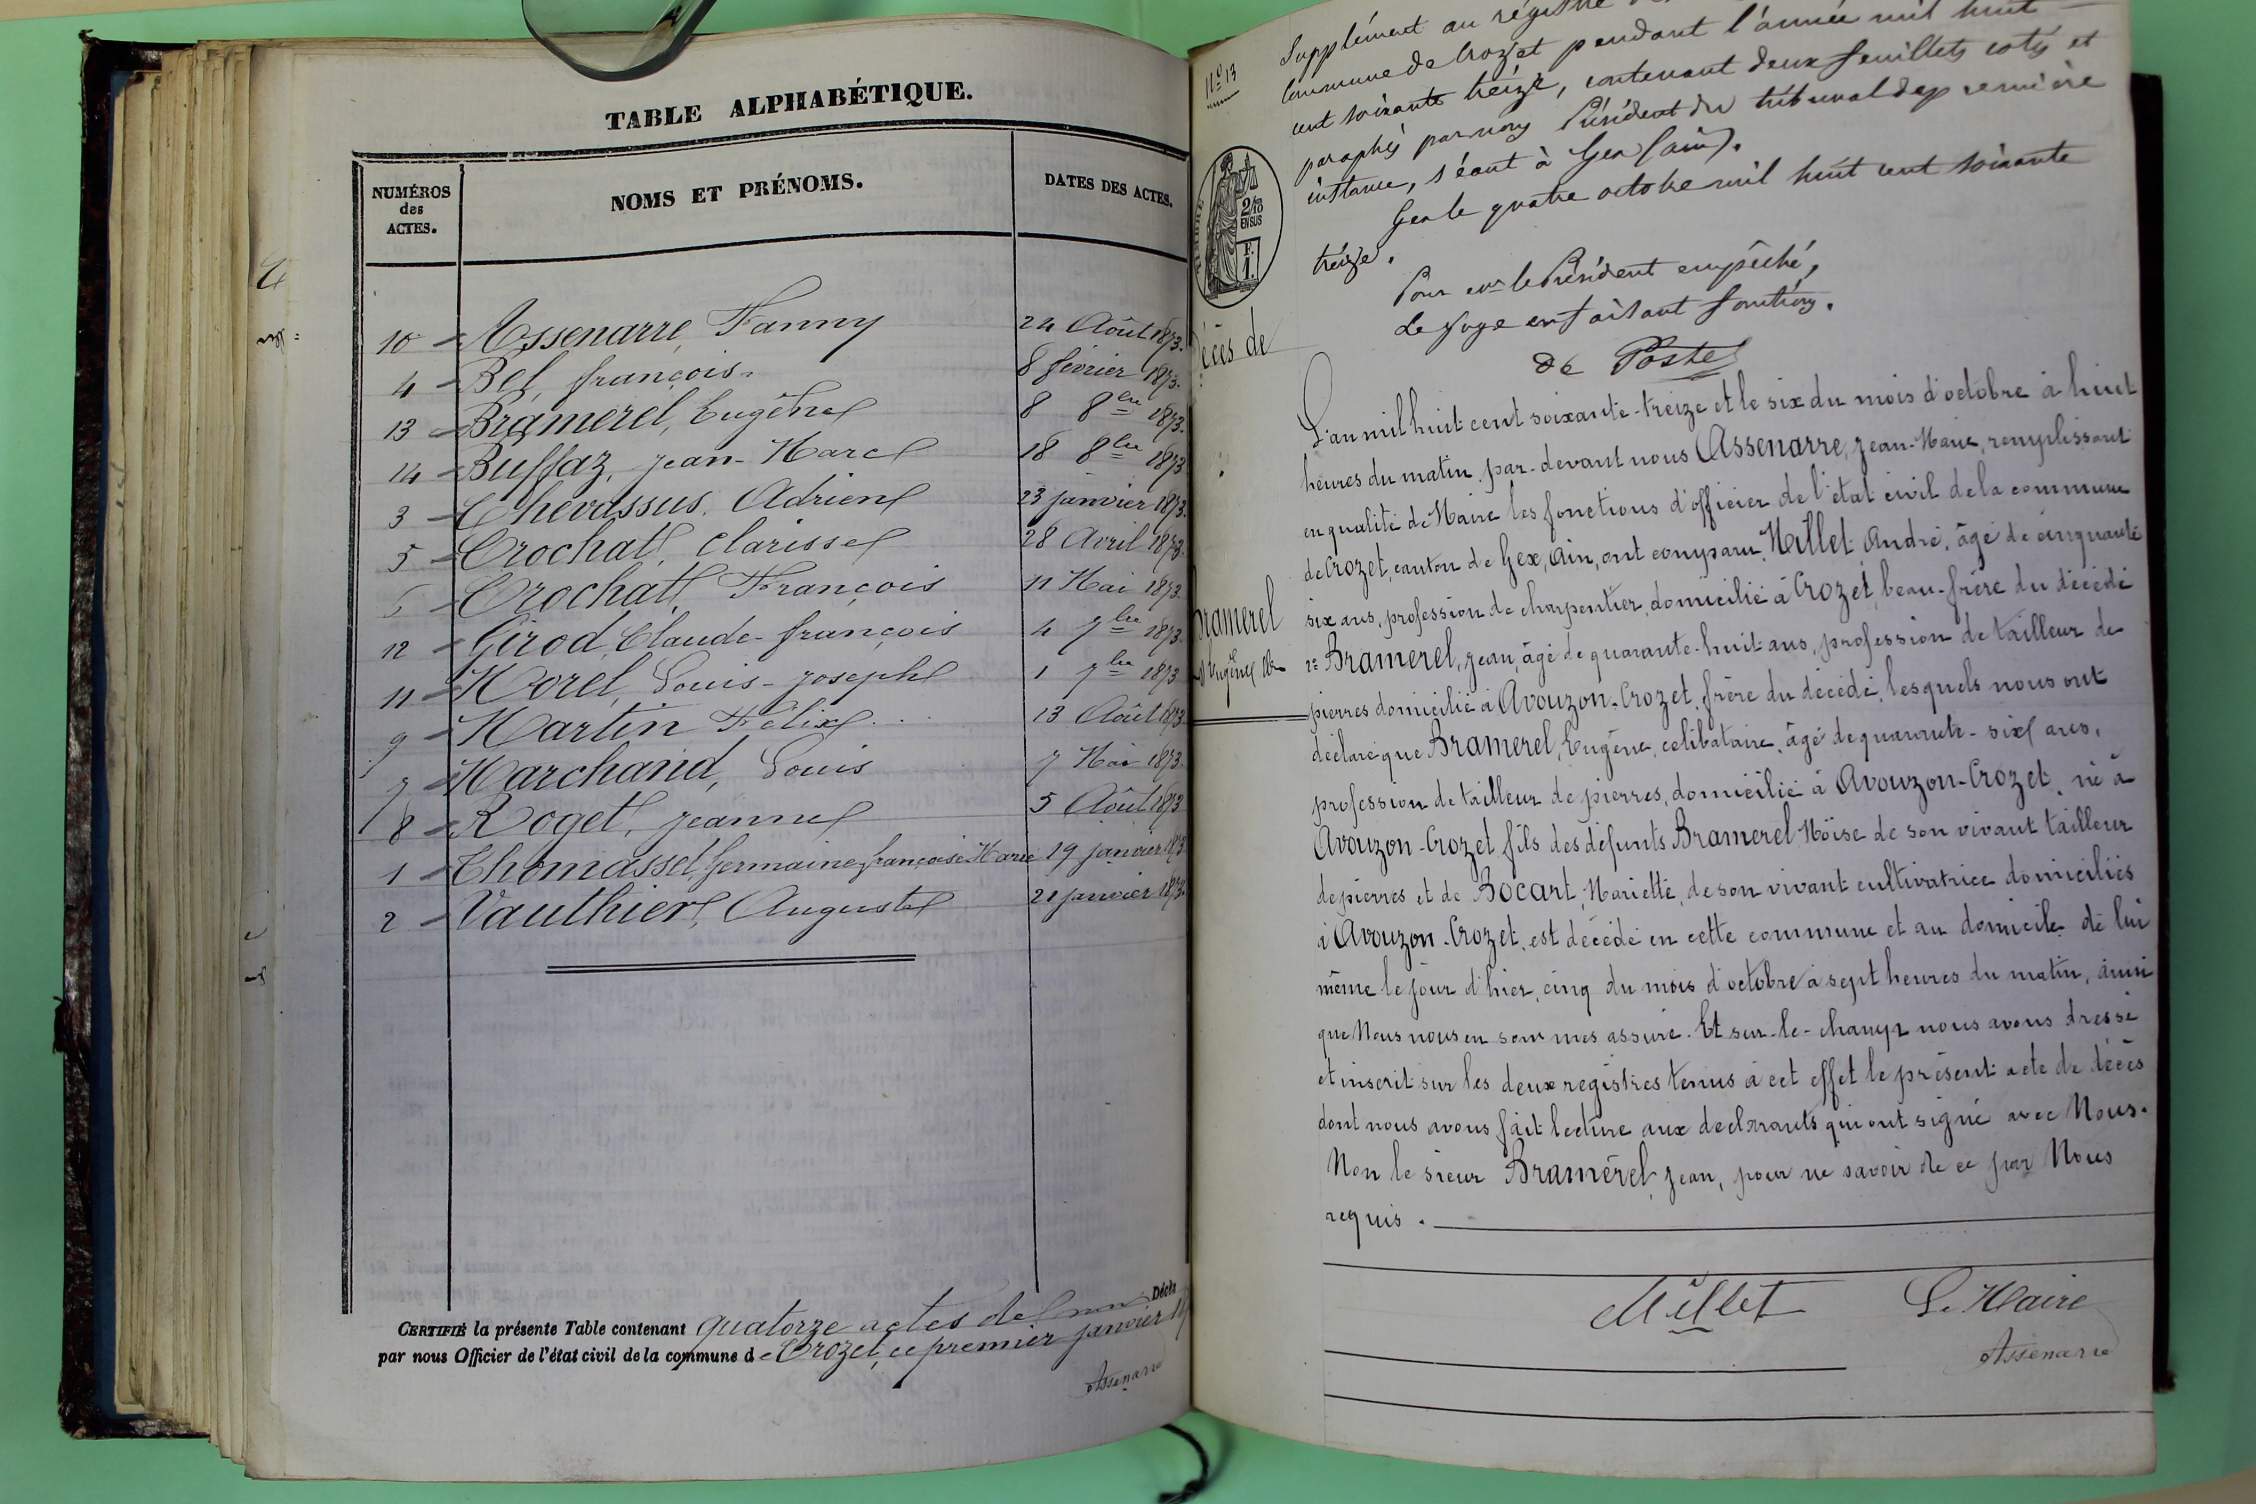 TABLE ALPHABÉTIQUE.
NUMÉROS
des
ACTES.
NOMS ET PRÉNOMS.
DATES DES ACTES.
10 Assenarre, Fanny 24 Août 1873.
4 Bel, françois. 8 février 1873.
13 Bramerel, Eugène 8 8bre 1873.
14 Buffaz, Jean-Marc 18 8bre 1873
3 Chevassus, Adrien 23 janvier 1873.
5 Crochat, Clarisse 28 Avril 1873.
Crochat, François 11 Mai 1873.
12 Girod, Claude-françois 4 7bre 1873.
11 Morel, Louis-Joseph 1 7bre 1873
9 Martin Félix 13 Août 1873
7 Marchand, Louis 7 Mai 1873.
8 Roget, Jeanne 5 Août 1873
1 Thomasset, Germaine françoise Marie 19 janvier 1873
2 Vauthier, Auguste 21 janvier 1873.
CERTIFIÉ la présente Table contenant quatorze actes de Décès
par nous Officier de l'état civil de la commune de Crozet, ce premier janvier
Assenarre
N° 13
Supplément au régistre
Commune de Crozet pendant l'année mil huit
cent soixante treize, contenant deux feuillets cotés et
paraphés par nous Président du tribunal de première
instance, séant à Gex (ain).
Gex le quatre octobre mil huit cent soixante
treize.
Pour Mr le Président empêché,
Le Juge en faisant fonctions.
De Postel
TIMBRE
2/10
EN SUS
F.
1.
écès de
Bramerel
Eugène
L'an mil huit cent soixante-treize et le six du mois d'octobre à huit
heures du matin, par-devant nous Assenarre, Jean-Marie, remplissant
en qualité de Maire les fonctions d'officier de l'état civil de la commune
de Crozet, canton de Gex, Ain, ont comparu Millet André, âgé de cinquante
six ans, profession de charpentier, domicilié à Crozet, beau-frère du décédé
2° Bramerel, Jean, âgé de quarante-huit ans, profession de tailleur de
pierres domicilié à Avouzon-Crozet, frère du décédé, lesquels nous ont
déclaré que Bramerel, Eugène, célibataire, âgé de quarante-six ans,
profession de tailleur de pierres, domicilié à Avouzon-Crozet, né à
Avouzon-Crozet fils des défunts Bramerel Moïse de son vivant tailleur
de pierres et de Bocart, Mariette, de son vivant cultivatrice domiciliés
à Avouzon-Crozet, est décédé en cette commune et au domicile de lui
même le jour d'hier, cinq du mois d'octobre à sept heures du matin, ainsi
que Nous nous en sommes assuré. Et sur-le-champ nous avons dressé
et inscrit sur les deux registres tenus à cet effet le présent acte de décès
dont nous avons fait lecture aux déclarants qui ont signé avec Nous.
Non le sieur Bramerel, Jean, pour ne savoir de ce par Nous
requis.
Millet Le Maire
Assenarre